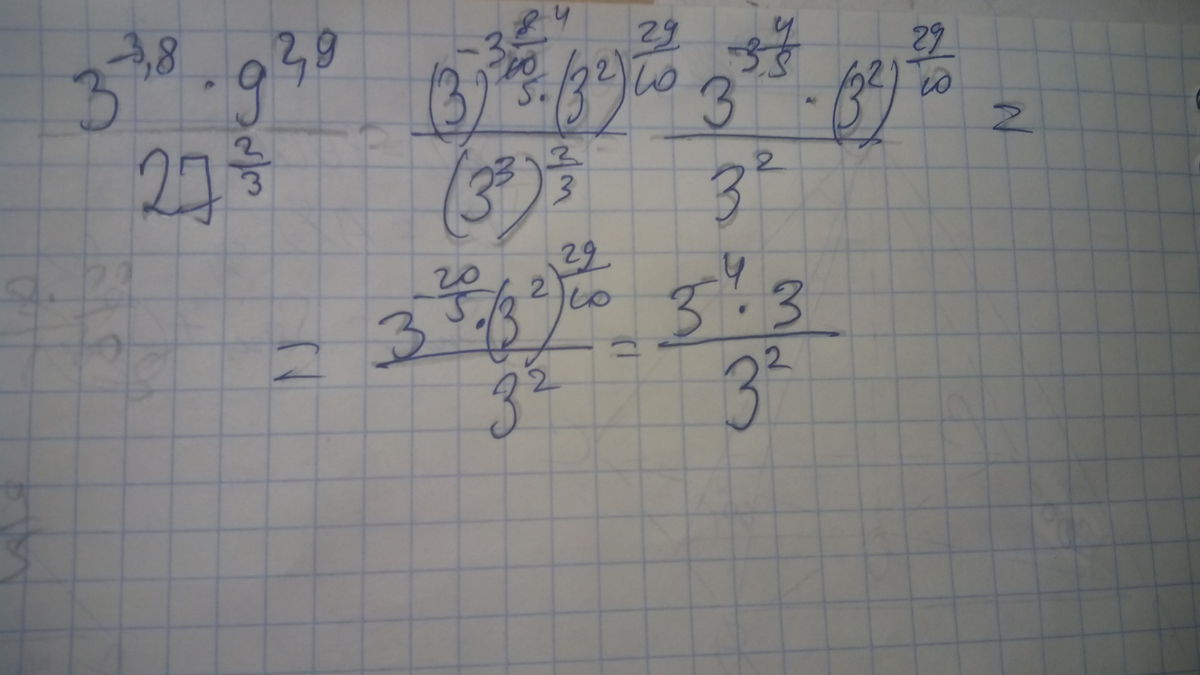 3^{-3,8} · 9^{2,9} / 27^{2/3} = (3)^{-3 8/10 4/5} · (3^2)^{29/10} / (3^3)^{2/3} 3^{-3 4/5} · (3^2)^{29/10} / 3^2 =
= 3^{-20/5} · (3^2)^{29/10} / 3^2 = 3^{-4} · 3 / 3^2